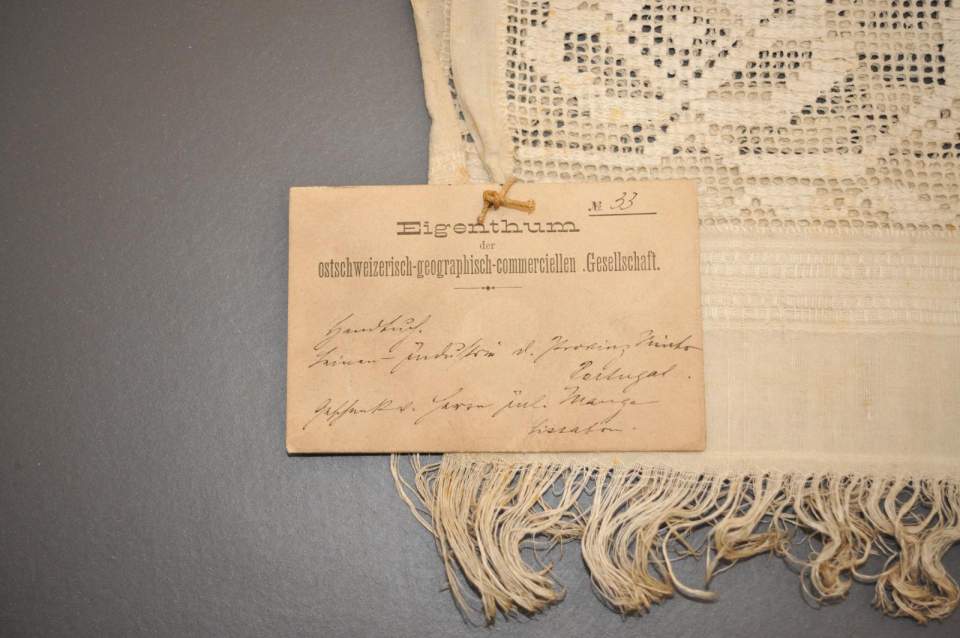 № 33
Eigenthum
der
ostschweizerisch-geographisch-commerciellen Gesellschaft.
Handtuch.
Leinen-Industrie d. Provinz Minho
Portugal.
Geschenk v. Herrn Jul. Mange
Lissabon.